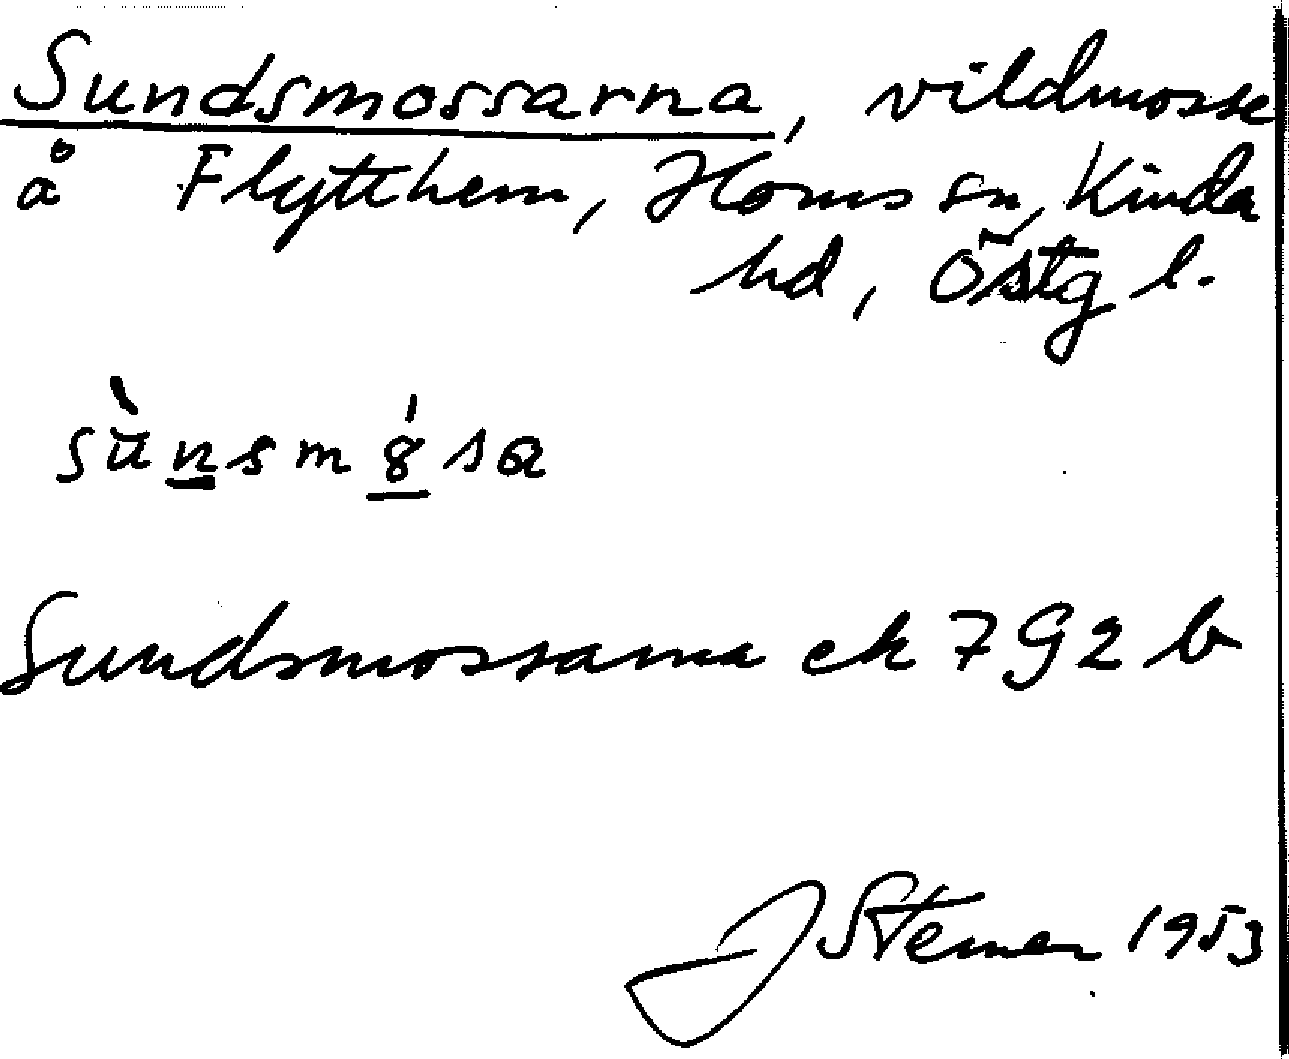 Sundsmossarna, vildmosse
å Flytthem, Horns sn, Kinda
hd, Östg l.
sùnsm8sa
Sundsmossarna ek 7 G 2 b
J Stemen 1953